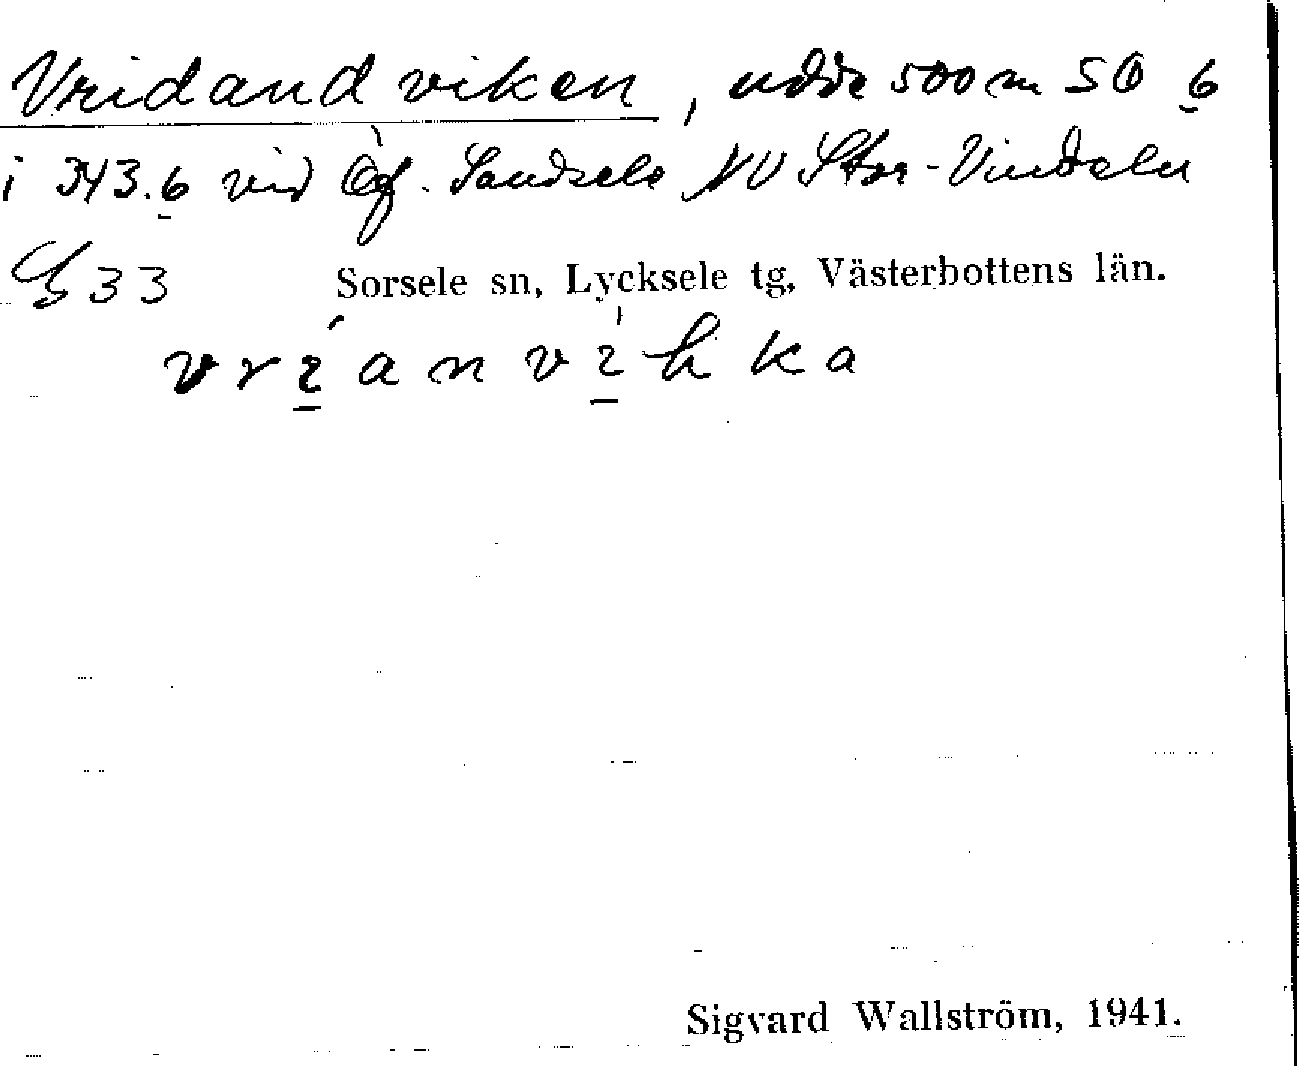 Vridandviken, udde 500 m SO 6
i 343.6 vid Öf. Sandsele NV Stor-Vindeln
G 33 Sorsele sn, Lycksele tg, Västerbottens län.
vrianvihka
Sigvard Wallström, 1941.